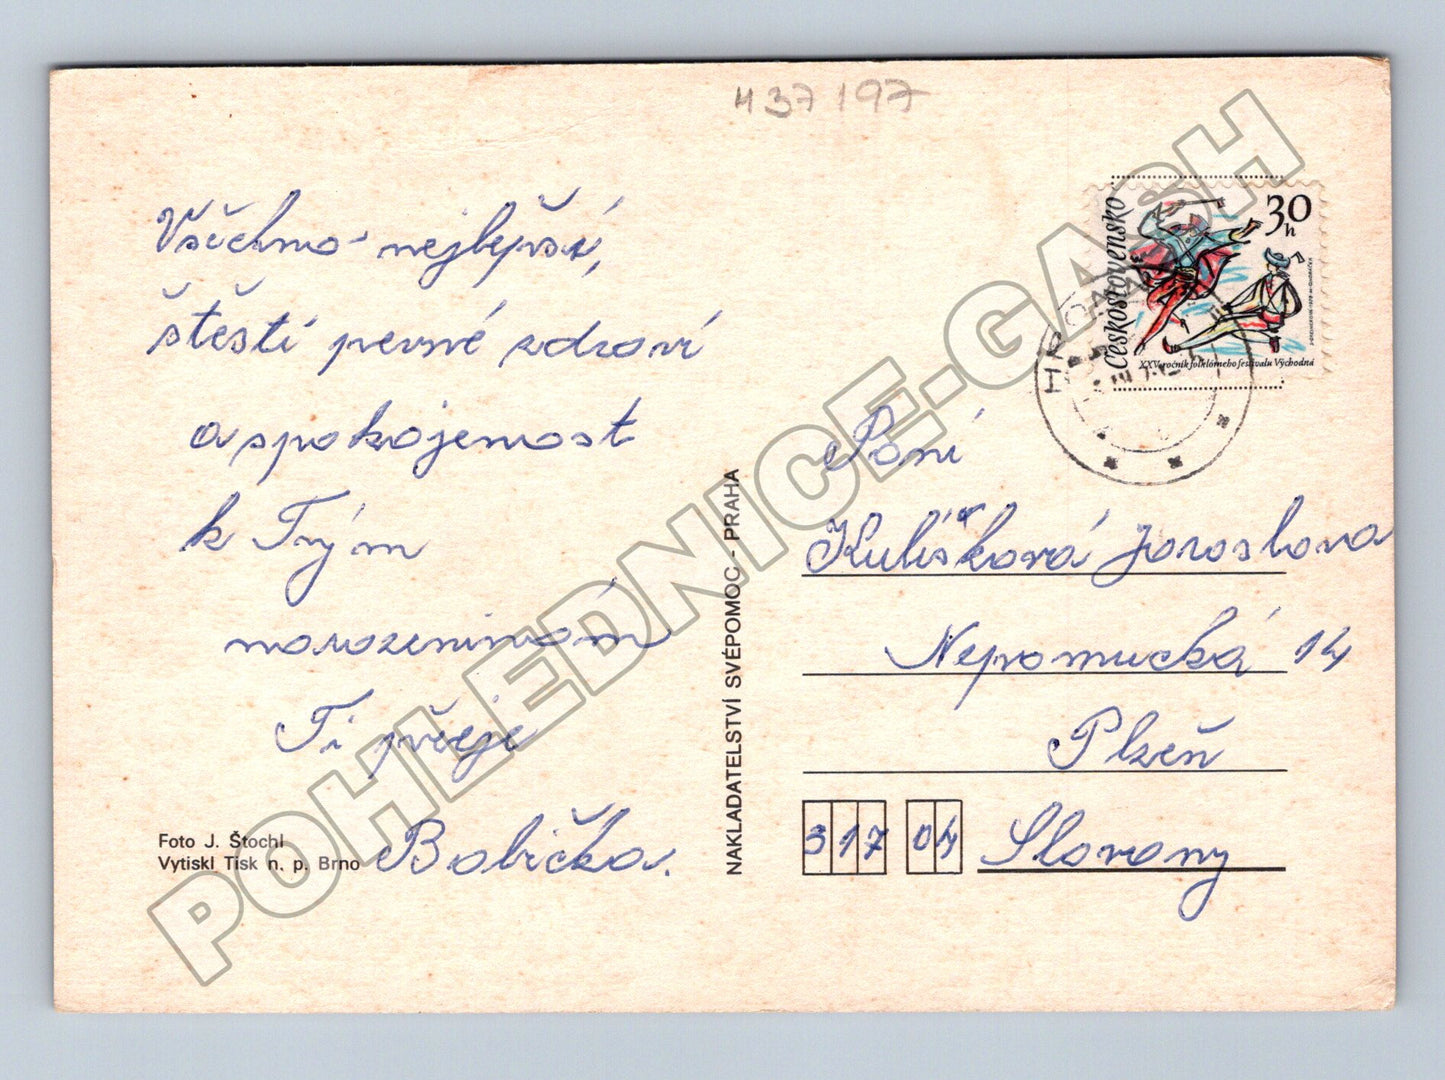 437197
Všechno nejlepší,
štěstí pevné zdraví
a spokojenost
k Tvým
narozeninám
Ti přeje
Babička.
Foto J. Štochl
Vytiskl Tisk n. p. Brno
NAKLADATELSTVÍ SVÉPOMOC - PRAHA
Československo
30
h
XXV. ročník folklórneho festivalu Východná
HRO
Paní
Kulíšková Jaroslava
Nepomucká 14
Plzeň
317 04 Slovany
POHLEDNICE.GASH